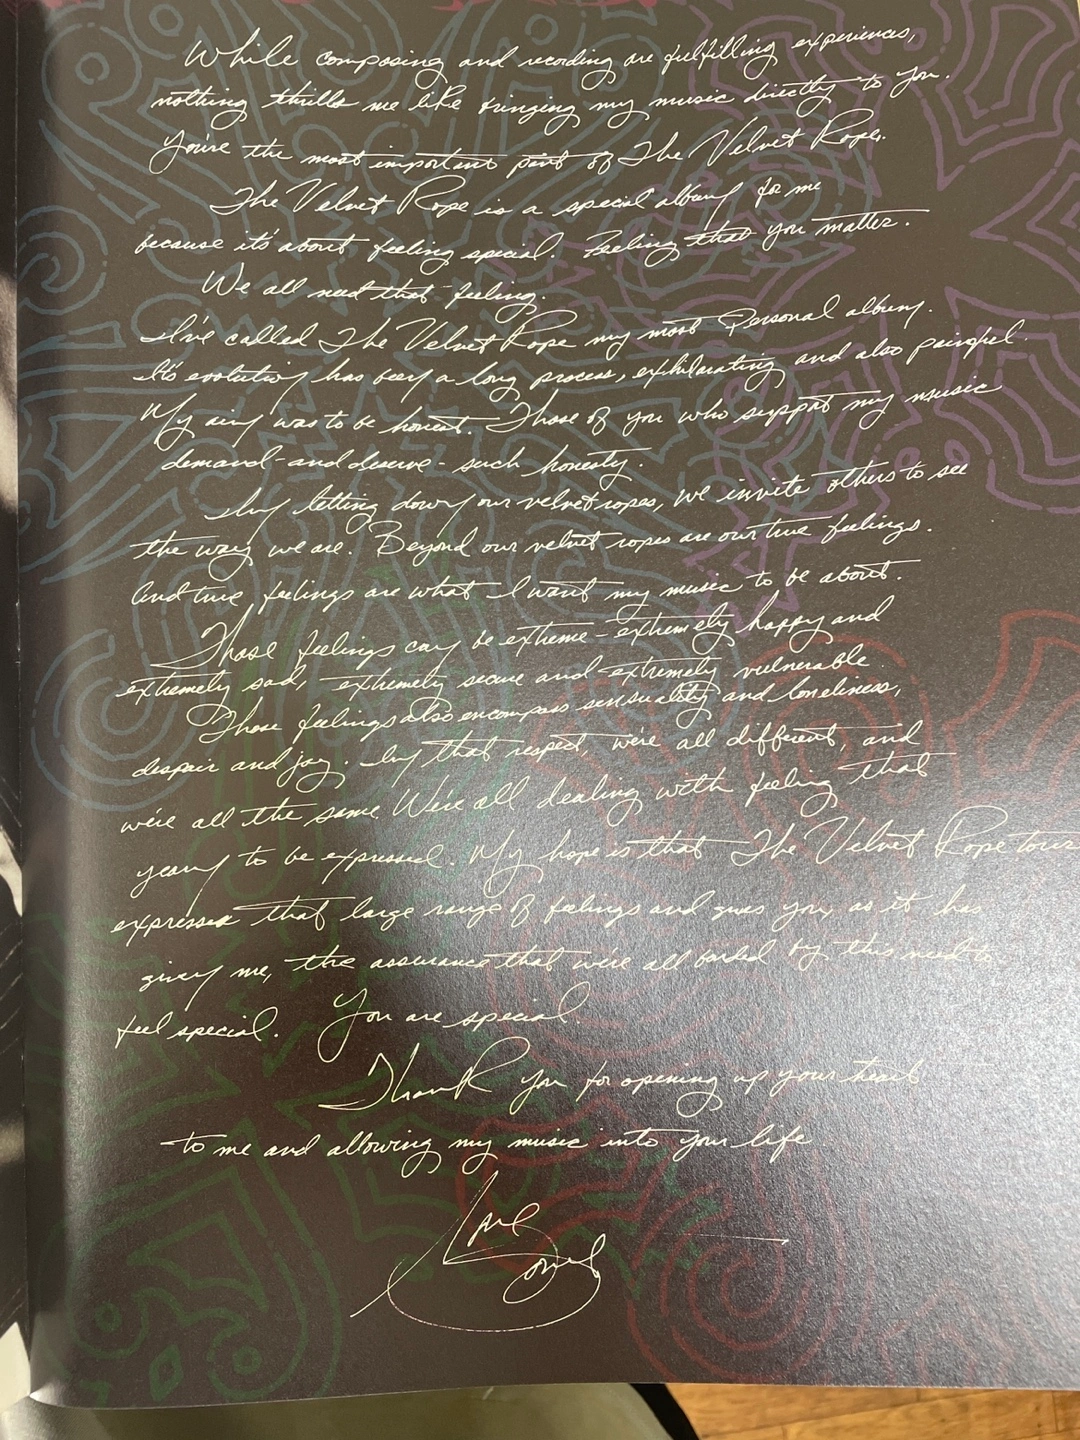 While composing and recording are fulfilling experiences,
nothing thrills me like bringing my music directly to you.
You're the most important part of The Velvet Rope.
The Velvet Rope is a special album for me
because it's about feeling special. Feeling that you matter.
We all need that feeling.
I've called The Velvet Rope my most Personal album.
It's evolution has been a long process, exhilarating and also painful.
My aim was to be honest. Those of you who support my music
demand - and deserve - such honesty.
In letting down our velvet ropes, we invite others to see
the way we are. Beyond our velvet ropes are our true feelings.
And true feelings are what I want my music to be about.
Those feelings can be extreme - extremely happy and
extremely sad, extremely secure and extremely vulnerable.
Those feelings also encompass sensuality and loneliness,
despair and joy. In that respect, we're all different, and
we're all the same We're all dealing with feeling that
yearn to be expressed. My hope is that The Velvet Rope tour
expresses that large range of feelings and gives you, as it has
given me, the assurance that we're all bonded by this need to
feel special. You are special.
Thank you for opening up your heart
to me and allowing my music into your life
Love